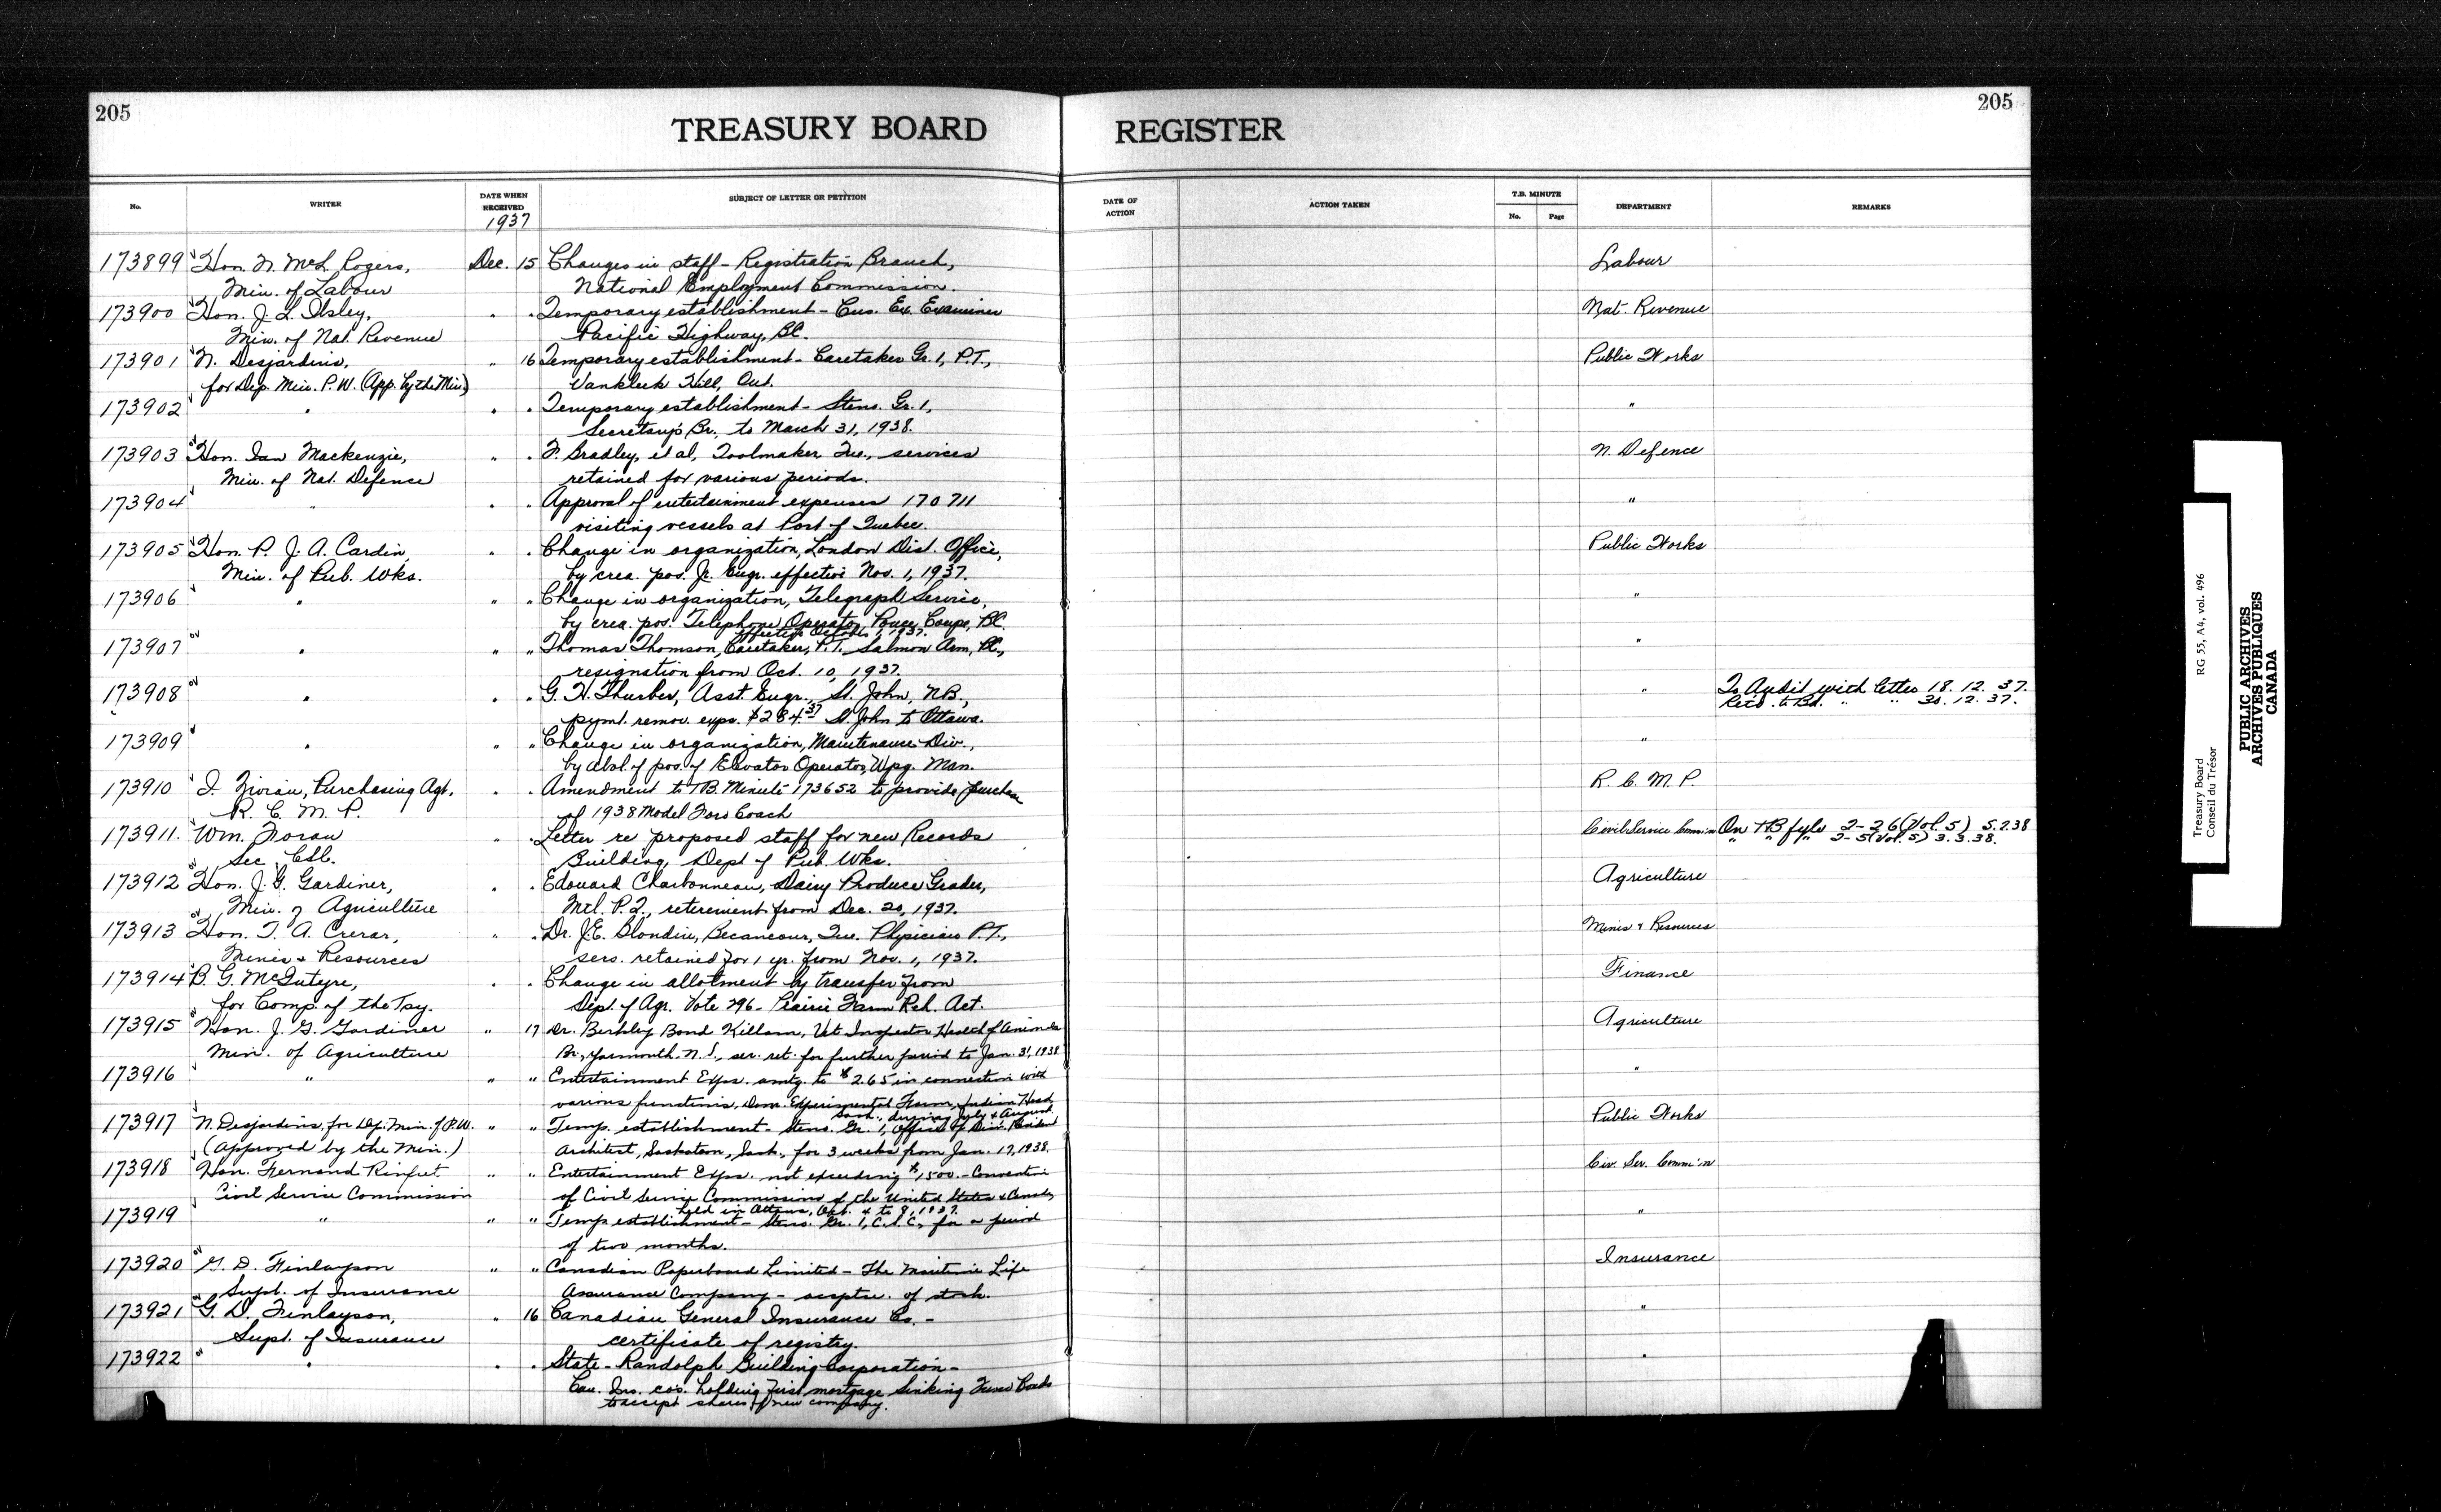 205
205
TREASURY BOARD REGISTER
No. WRITER DATE WHEN RECEIVED SUBJECT OF LETTER OR PETITION DATE OF ACTION ACTION TAKEN T.B. MINUTE No. Page DEPARTMENT REMARKS
1937
173899 Hon. N. McL Rogers, Dec. 15 Changes in staff - Registration Branch, Labour
Min. of Labour National Employment Commission.
173900 Hon. J. L. Ilsley, " " Temporary establishment - Cus. Ex. Examiner Nat. Revenue
Min. of Nat. Revenue Pacific Highway, BC.
173901 N. Desjardins, " 16 Temporary establishment - Caretaker Gr. 1, P.T., Public Works
for Dep. Min. P.W. (App. by the Min.) Vankleek Hill, Ont.
173902 " " " Temporary establishment - Steno. Gr. 1, "
Secretary's Br., to March 31, 1938.
173903 Hon. Ian Mackenzie, " " F. Bradley, et al, Toolmaker Que., services N. Defence
Min. of Nat. Defence retained for various periods.
173904 " " " Approval of entertainment expenses 170711 "
visiting vessels at Port of Quebec.
173905 Hon. P. J. A. Cardin, " " Change in organization, London Dist. Office, Public Works
Min. of Pub. Wks. by crea. pos. Jr. Engr. effective Nov. 1, 1937.
173906 " " " Change in organization, Telegraph Service, "
by crea. pos. Telephone Operator, Pouce Coupe, BC.
effective October 1, 1937.
173907 " " " Thomas Thomson, Caretaker, P.T. Salmon Arm, BC., "
resignation from Oct. 10, 1937.
173908 " " " G. H. Thurber, Asst. Engr., St. John, NB., " To Audit with letter 18. 12. 37.
pymt. remov. exps. $284.37 St. John to Ottawa. Retd. to Bd. " " 30. 12. 37.
173909 " " " Change in organization, Maintenance Div., "
by abol. of pos. of Elevator Operator, Wpg. Man.
173910 Purchasing Agt. " " Amendment to TB. Minute 173652 to provide purchase R. C. M. P.
R. C. M. P. of 1938 Model Ford Coach
173911. Wm. Foran " " Letter re proposed staff for new Records Civil Service Comm'n On TB fyle 2-26 (Vol. 5) 5.2.38
Sec. Building, Dept of Pub. Wks. " " " 2-5 (Vol. 5) 3.3.38.
173912 Hon. J. G. Gardiner, " " Edouard Charbonneau, Dairy Produce Grader, Agriculture
Min. of Agriculture Mtl. P.Q., retirement from Dec. 20, 1937.
173913 Hon. T. A. Crerar, " " Dr. J.E. Blondin, Becancour, Que. Physician P.T., Mines & Resources
Mines & Resources sers. retained for 1 yr. from Nov. 1, 1937.
173914 B. G. McIntyre, " " Change in allotment by transfer from Finance
for Comp. of the Tsy. Dept. of Agr. Vote 296 - Prairie Farm Reh. Act.
173915 Hon. J. G. Gardiner " 17 Dr. Berkley Bond Killam, Vet Inspector Health of Animals Agriculture
Min. of Agriculture Br., Yarmouth. N.S., ser. ret. for further period to Jan. 31, 1938
173916 " " " Entertainment Exps. amtg. to $2.65 in connection with "
various functions, Dom. Experimental Farm, Indian Head,
Sask., during July & August
173917 N. Desjardins, for Dep. Min. of P.W. " " Temp. establishment - Steno. Gr. 1, Office of Dist. Resident Public Works
(Approved by the Min.) Architect, Saskatoon, Sask., for 3 weeks from Jan. 17, 1938.
173918 Hon. Fernand Rinfret " " Entertainment Exps. not exceeding $1,500 - Convention Civ. Ser. Comm'n
Civil Service Commission of Civil Service Commissions of the United States & Canada,
held in Ottawa, Oct. 4 to 8, 1937.
173919 " " " Temp establishment - Steno. Gr. 1, C.S.C., for a period "
of two months.
173920 G. D. Finlayson " " Canadian Paperboard Limited - The Maritime Life Insurance
Supt. of Insurance Assurance Company - of stock.
173921 G. D. Finlayson, " 16 Canadian General Insurance Co. - "
Supt. of Insurance certificate of registry.
173922 " " " State - Randolph Building Corporation - "
Can. Ins. cos. holding First mortgage Sinking Fund Bonds
to accept shares of new company.
Treasury Board RG 55, A4, vol. 496
Conseil du Trésor
PUBLIC ARCHIVES
ARCHIVES PUBLIQUES
CANADA